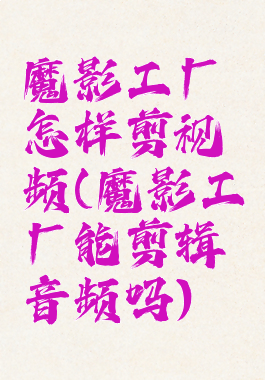 魔影工厂
怎样剪视
频(魔影工
厂能剪辑
音频吗)